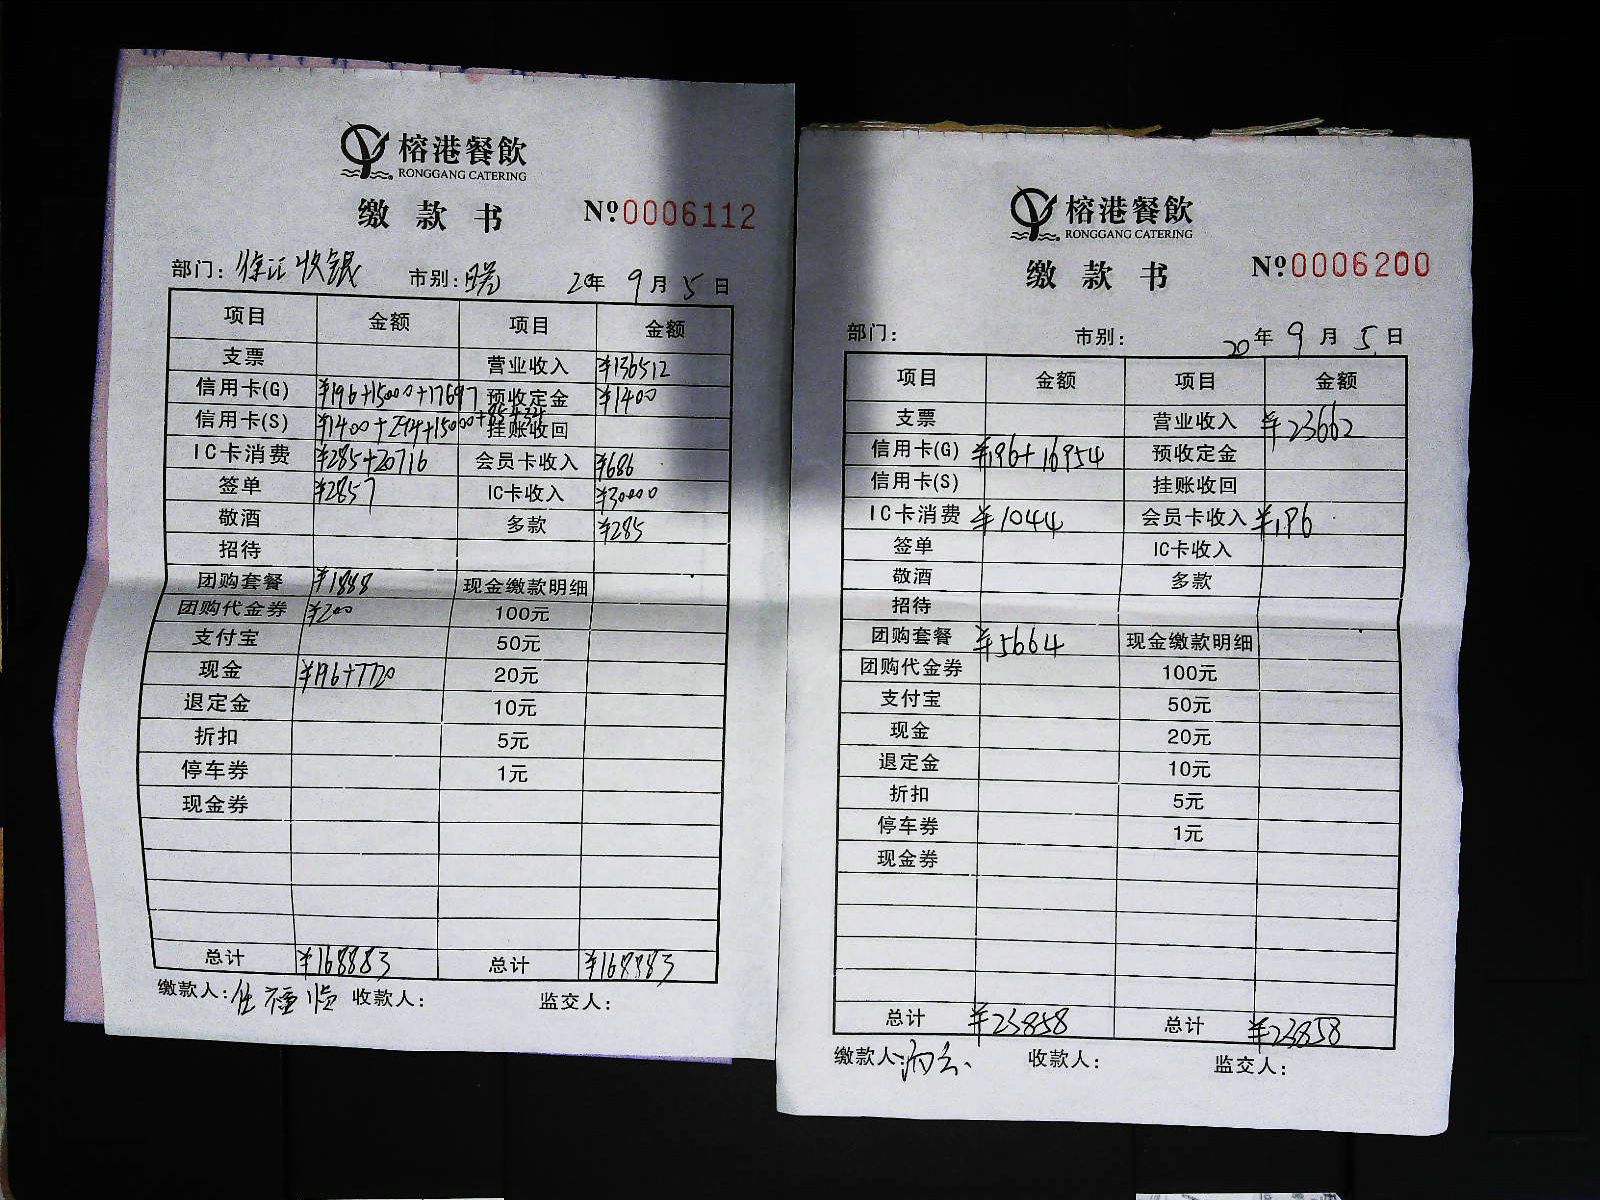 榕港餐飲
RONGGANG CATERING
缴款书 №0006112
部门: 收银 市别: 晚 20年 9月 5日
项目 金额 项目 金额
支票 营业收入 ¥136512
信用卡(G) ¥196+15000+17697 预收定金 ¥1400
信用卡(S) ¥1400+294+15000+85434 挂账收回
IC卡消费 ¥285+20716 会员卡收入 ¥686
签单 ¥2857 IC卡收入 ¥30000
敬酒 多款 ¥285
招待
团购套餐 ¥1888 现金缴款明细
团购代金券 ¥200 100元
支付宝 50元
现金 ¥196+7720 20元
退定金 10元
折扣 5元
停车券 1元
现金券
总计 ¥168883 总计 ¥168883
缴款人: 收款人: 监交人:
榕港餐飲
RONGGANG CATERING
缴款书 №0006200
部门: 市别: 20年 9月 5日
项目 金额 项目 金额
支票 营业收入 ¥23662
信用卡(G) ¥196+16954 预收定金
信用卡(S) 挂账收回
IC卡消费 ¥1044 会员卡收入 ¥196
签单 IC卡收入
敬酒 多款
招待
团购套餐 ¥5664 现金缴款明细
团购代金券 100元
支付宝 50元
现金 20元
退定金 10元
折扣 5元
停车券 1元
现金券
总计 ¥23858 总计 ¥23858
缴款人: 收款人: 监交人: